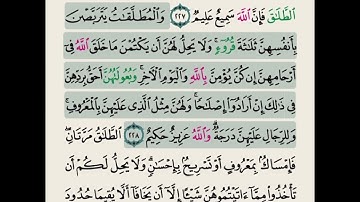 ٱلطَّلَٰقَ فَإِنَّ ٱللَّهَ سَمِيعٌ عَلِيمٌ ٢٢٧ وَٱلْمُطَلَّقَٰتُ يَتَرَبَّصْنَ
بِأَنفُسِهِنَّ ثَلَٰثَةَ قُرُوٓءٍ وَلَا يَحِلُّ لَهُنَّ أَن يَكْتُمْنَ مَا خَلَقَ ٱللَّهُ فِىٓ
أَرْحَامِهِنَّ إِن كُنَّ يُؤْمِنَّ بِٱللَّهِ وَٱلْيَوْمِ ٱلْءَاخِرِ وَبُعُولَتُهُنَّ أَحَقُّ بِرَدِّهِنَّ
فِى ذَٰلِكَ إِنْ أَرَادُوٓا۟ إِصْلَٰحًا وَلَهُنَّ مِثْلُ ٱلَّذِى عَلَيْهِنَّ بِٱلْمَعْرُوفِ
وَلِلرِّجَالِ عَلَيْهِنَّ دَرَجَةٌ وَٱللَّهُ عَزِيزٌ حَكِيمٌ ٢٢٨ ٱلطَّلَٰقُ مَرَّتَانِ
فَإِمْسَاكٌۢ بِمَعْرُوفٍ أَوْ تَسْرِيحٌۢ بِإِحْسَٰنٍ وَلَا يَحِلُّ لَكُمْ أَن
تَأْخُذُوا۟ مِمَّآ ءَاتَيْتُمُوهُنَّ شَيْـًٔا إِلَّآ أَن يَخَافَآ أَلَّا يُقِيمَا حُدُودَ